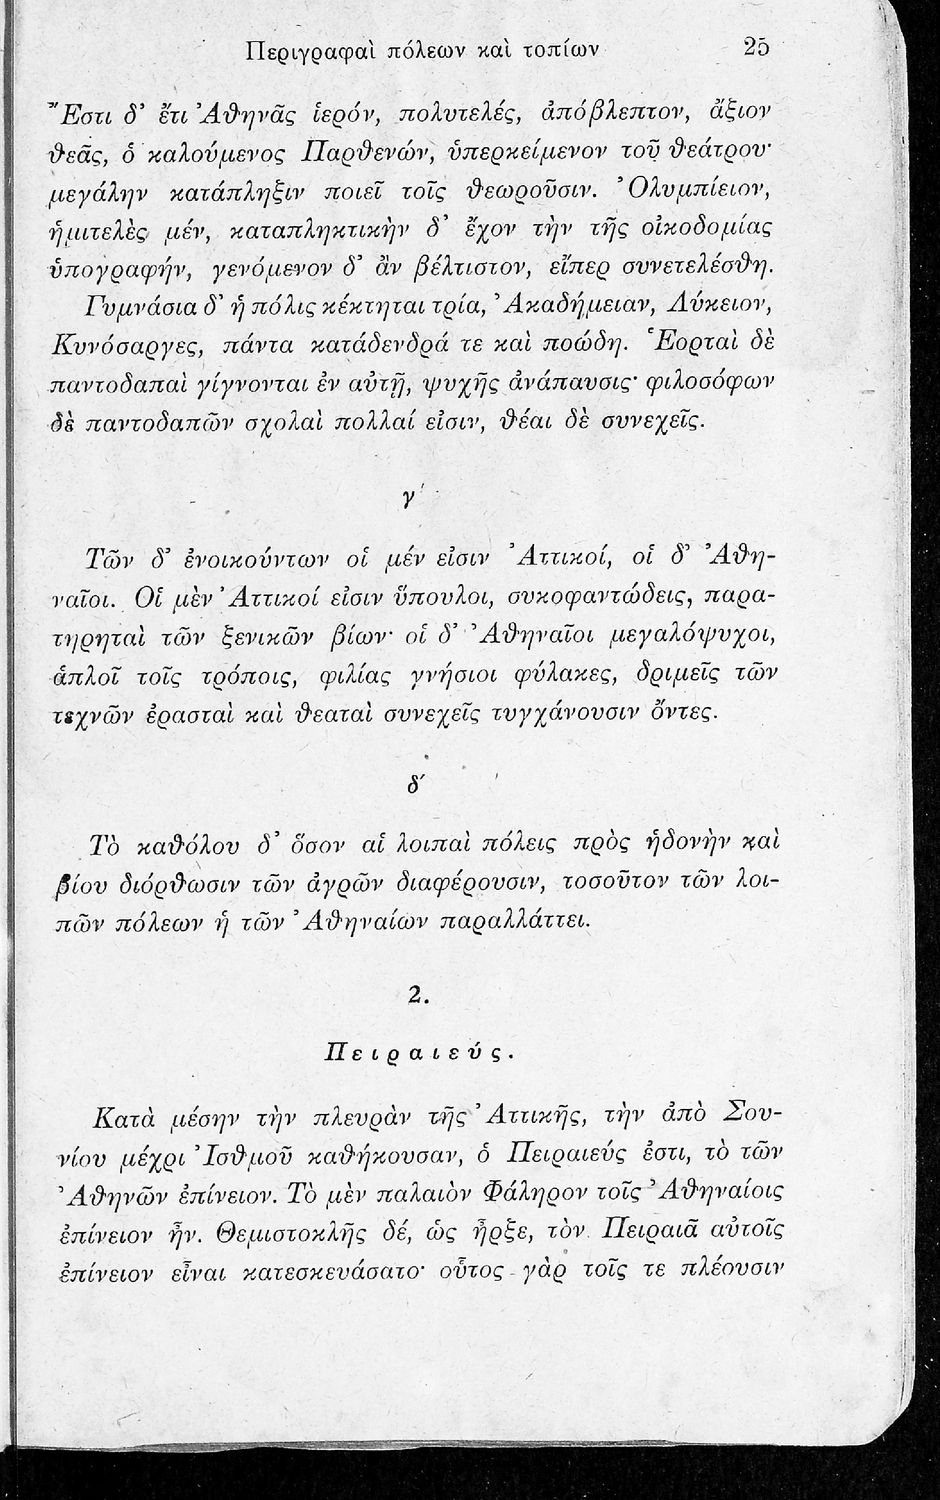 Περιγραφαὶ πόλεων καὶ τοπίων 25
Ἔστι δ' ἔτι Ἀθηνᾶς ἱερόν, πολυτελές, ἀπόβλεπτον, ἄξιον
θεᾶς, ὁ καλούμενος Παρθενών, ὑπερκείμενον τοῦ θεάτρου·
μεγάλην κατάπληξιν ποιεῖ τοῖς θεωροῦσιν. Ὀλυμπίειον,
ἡμιτελὲς μέν, καταπληκτικὴν δ' ἔχον τὴν τῆς οἰκοδομίας
ὑπογραφήν, γενόμενον δ' ἂν βέλτιστον, εἴπερ συνετελέσθη.
Γυμνάσια δ' ἡ πόλις κέκτηται τρία, Ἀκαδήμειαν, Λύκειον,
Κυνόσαργες, πάντα κατάδενδρά τε καὶ ποώδη. Ἑορταὶ δὲ
παντοδαπαὶ γίγνονται ἐν αὐτῇ, ψυχῆς ἀνάπαυσις· φιλοσόφων
δὲ παντοδαπῶν σχολαὶ πολλαί εἰσιν, θέαι δὲ συνεχεῖς.
γ'
Τῶν δ' ἐνοικούντων οἱ μέν εἰσιν Ἀττικοί, οἱ δ' Ἀθη-
ναῖοι. Οἱ μὲν Ἀττικοί εἰσιν ὕπουλοι, συκοφαντώδεις, παρα-
τηρηταὶ τῶν ξενικῶν βίων· οἱ δ' Ἀθηναῖοι μεγαλόψυχοι,
ἁπλοῖ τοῖς τρόποις, φιλίας γνήσιοι φύλακες, δριμεῖς τῶν
τεχνῶν ἐρασταὶ καὶ θεαταὶ συνεχεῖς τυγχάνουσιν ὄντες.
δ'
Τὸ καθόλου δ' ὅσον αἱ λοιπαὶ πόλεις πρὸς ἡδονὴν καὶ
βίου διόρθωσιν τῶν ἀγρῶν διαφέρουσιν, τοσοῦτον τῶν λοι-
πῶν πόλεων ἡ τῶν Ἀθηναίων παραλλάττει.
2.
Πειραιεύς.
Κατὰ μέσην τὴν πλευρὰν τῆς Ἀττικῆς, τὴν ἀπὸ Σου-
νίου μέχρι Ἰσθμοῦ καθήκουσαν, ὁ Πειραιεύς ἐστι, τὸ τῶν
Ἀθηνῶν ἐπίνειον. Τὸ μὲν παλαιὸν Φάληρον τοῖς Ἀθηναίοις
ἐπίνειον ἦν. Θεμιστοκλῆς δέ, ὡς ἦρξε, τὸν Πειραιᾶ αὐτοῖς
ἐπίνειον εἶναι κατεσκευάσατο· οὗτος γὰρ τοῖς τε πλέουσιν